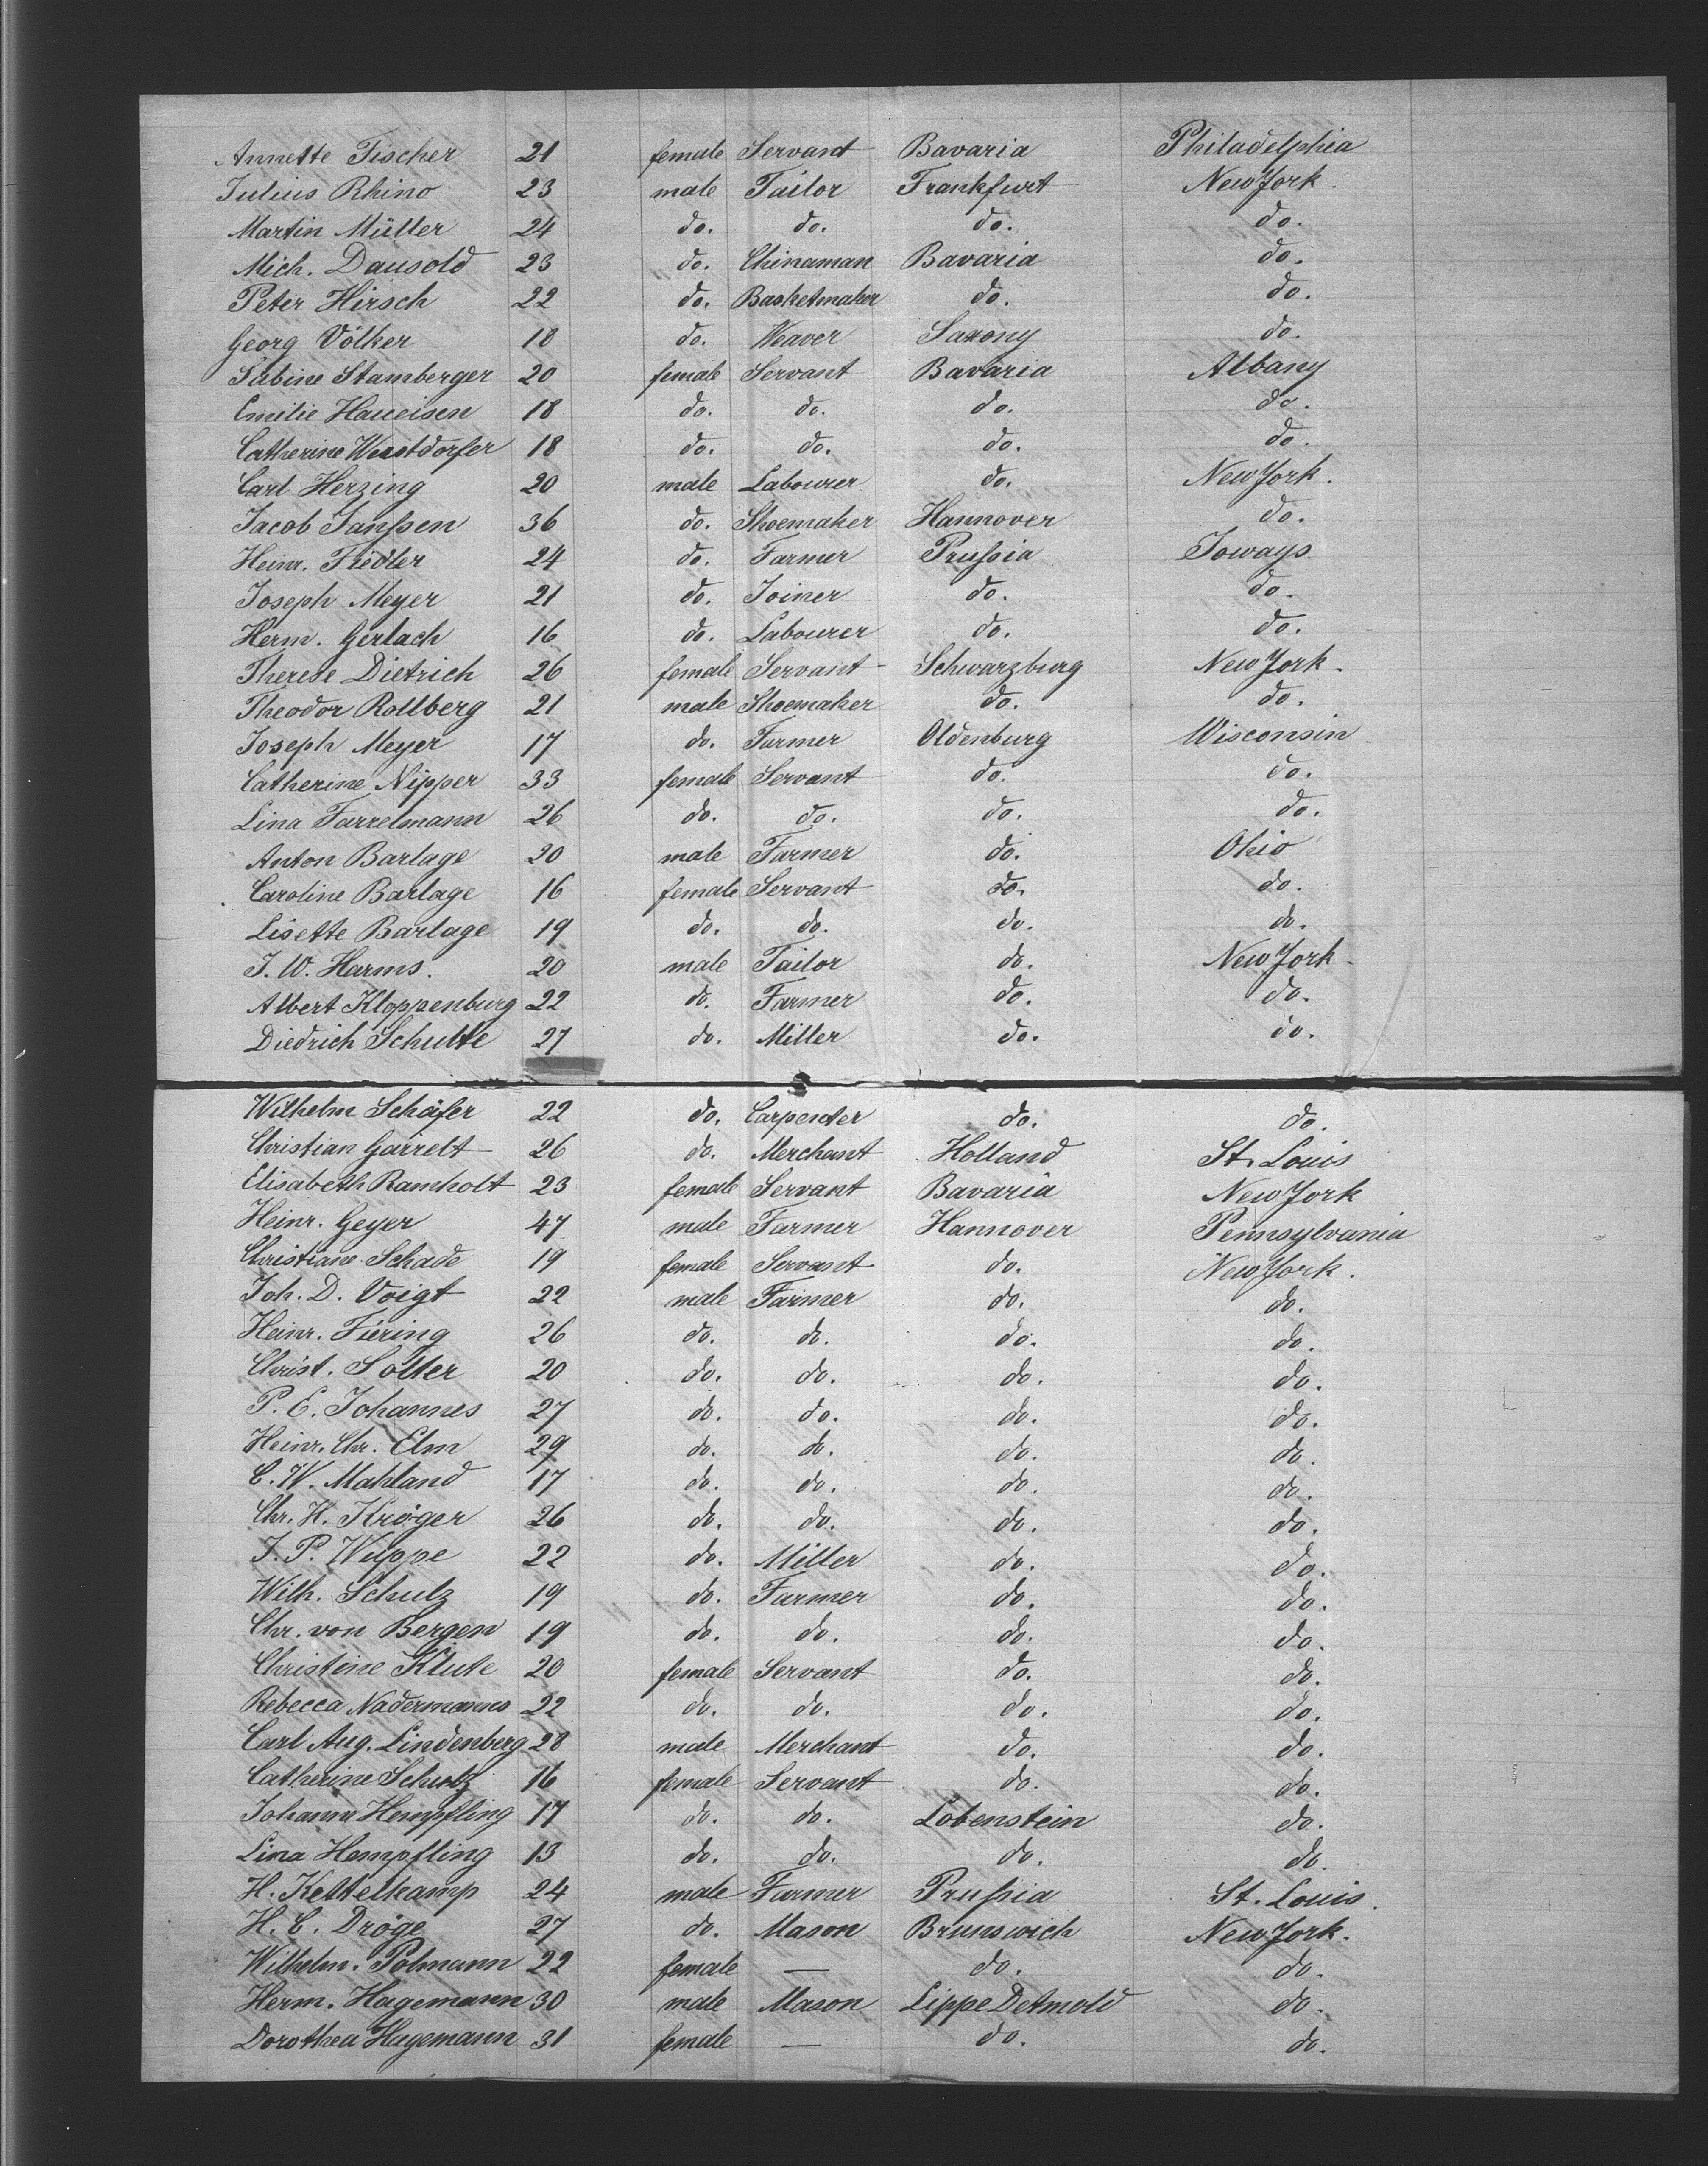 Annette Fischer 21 female Servant Bavaria Philadelphia
Julius Rhino 23 male Tailor Frankfurt New York.
Martin Müller 24 do. do. do. do.
Mich. Dausold 23 do. Chinaman Bavaria do.
Peter Hirsch 22 do. Basketmaker do. do.
Georg Völker 18 do. Weaver Saxony do.
Sabine Stamberger 20 female Servant Bavaria Albany
Emilie Haueisen 18 do. do. do. do.
Catherine 18 do. do. do. do.
Carl Herzing 20 male Labourer do. New York.
Jacob Janßen 36 do. Shoemaker Hannover do.
Heinr. Fiedler 24 do. Farmer Prußia Joways
Joseph Meyer 21 do. Joiner do. do.
Herm. Gerlach 16 do. Labourer do. do.
Therese Dietrich 26 female Servant Schwarzburg New York.
Theodor Rollberg 21 male Shoemaker do. do.
Joseph Meyer 17 do. Farmer Oldenburg Wisconsin
Catherine Nipper 33 female Servant do. do.
Lina Farrelmann 26 do. do. do. do.
Anton Barlage 20 male Farmer do. Ohio
Caroline Barlage 16 female Servant do. do.
Lisette Barlage 19 do. do. do. do.
J. W. Harms. 20 male Tailor do. New York.
Albert Kloppenburg 22 do. Farmer do. do.
Diedrich Schulte 27 do. Miller do. do.
Wilhelm Schäfer 22 do. Carpenter do. do.
Christian Garrelt 26 do. Merchant Holland St. Louis
Elisabeth Ramholt 23 female Servant Bavaria New York
Heinr. Geyer 47 male Farmer Hannover Pennsylvania
Christiane Schade 19 female Servant do. New York.
Joh. D. Voigt 22 male Farmer do. do.
Heinr. 26 do. do. do. do.
Christ. Sölter 20 do. do. do. do.
P. E. Johannes 27 do. do. do. do.
Heinr. Chr. Elm 29 do. do. do. do.
C. W. Mahland 17 do. do. do. do.
Chr. H. Kröger 26 do. do. do. do.
J. P. Wuppe 22 do. Miller do. do.
Wilh. Schulz 19 do. Farmer do. do.
Chr. von Bergen 19 do. do. do. do.
Christine Klute 20 female Servant do. do.
Rebecca Nadermanns 22 do. do. do. do.
Carl Aug. Lindenberg 28 male Merchant do. do.
Catherine Schulz 16 female Servant do. do.
Johanna Hempfling 17 do. do. Lobenstein do.
Lina Hempfling 13 do. do. do. do.
H. Kettelkamp 24 male Farmer Prußia St. Louis.
H. C. Dröge 27 do. Mason Brunswich New York.
Wilhelm. Polmann 22 female — do. do.
Herm. Hagemann 30 male Mason Lippe Detmold do.
Dorothea Hagemann 31 female — do. do.